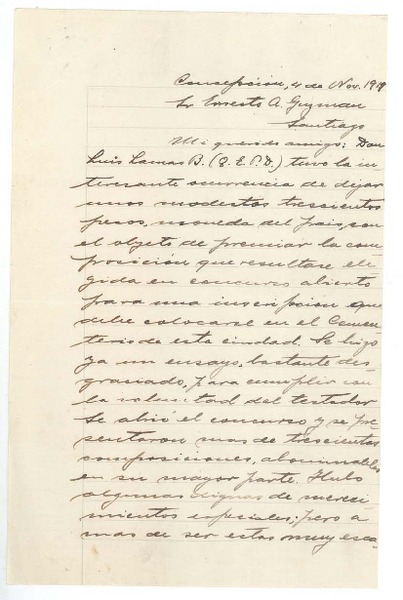 Concepción, 4 de Nov. 191
Sr Ernesto A. Guzman
Santiago
Mi querido amigo: Don
Luis Lamas B. (Q. E. P. D.) tuvo la in
teresante ocurrencia de dejar
unos modestos trescientos
pesos, moneda del pais, con
el objeto de premiar la com
posición que resultare ele
gida en concurso abierto
para una inscripción que
debe colocarse en el Cemen
terio de esta ciudad. Se hizo
ya un ensayo, bastante des
graciado, para cumplir con
la voluntad del testador
Se abrió el concurso y se pre
sentaron mas de trescientas
composiciones, abominables
en su mayor parte. Hubo
algunas dignas de mereci
mientos especiales; pero a
mas de ser estas muy esca